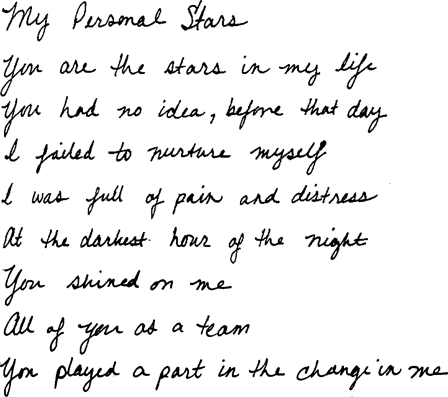 My Personal Stars
You are the stars in my life
You had no idea, before that day
I failed to nurture myself
I was full of pain and distress
At the darkest hour of the night
You shined on me
All of you as a team
You played a part in the change in me